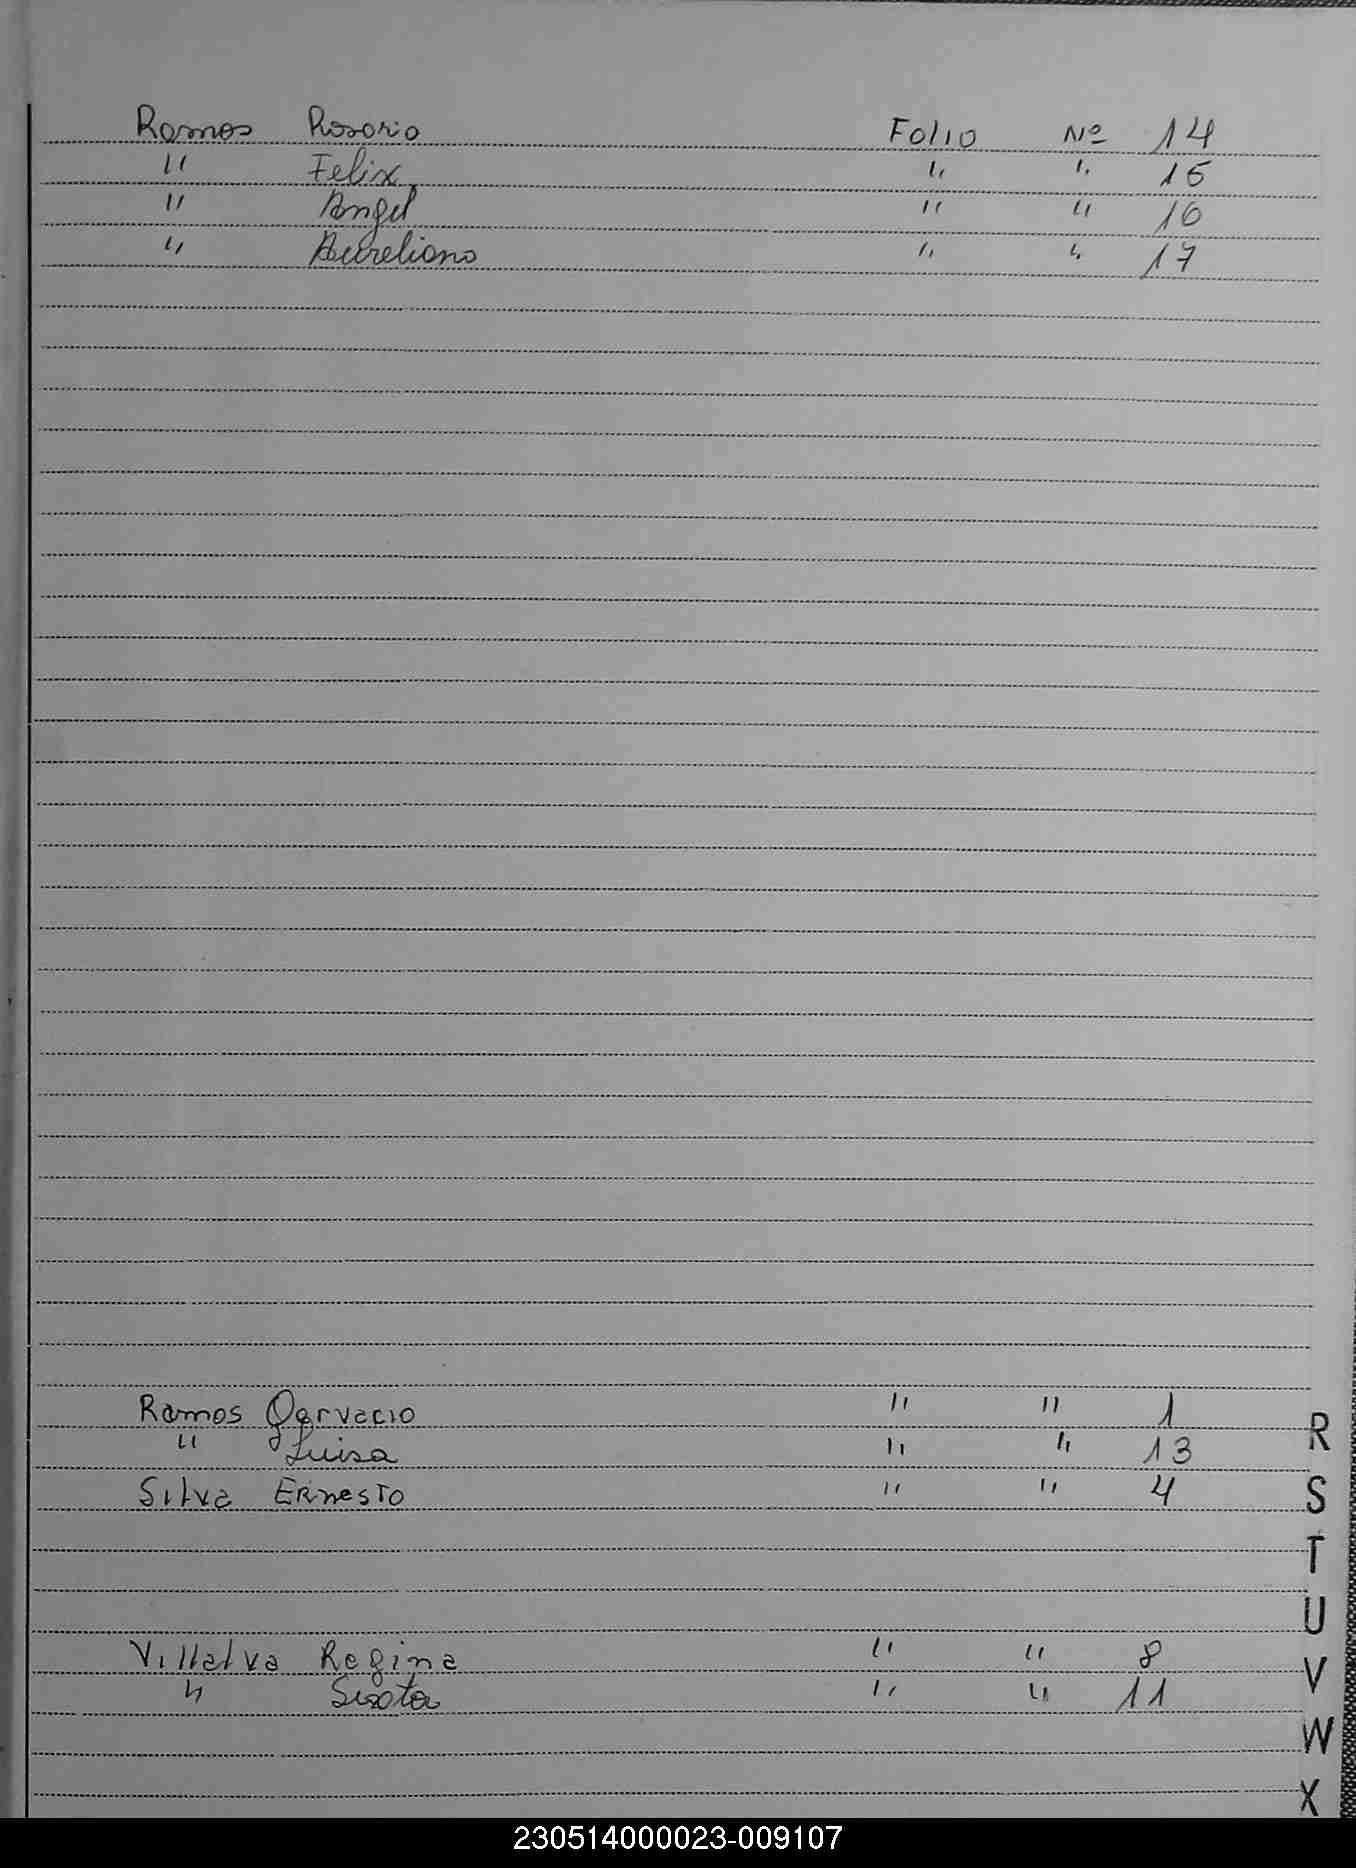 Ramos Rosario Folio Nº 14
" Felix " " 15
" Angel " " 16
" Aureliano " " 17
Ramos Gervacio " " 1
" Luisa " " 13
R
Silva Ernesto " " 4
S
T
U
Villalva Regina " " 8
V
" Sixta " " 11
W
X
230514000023-009107